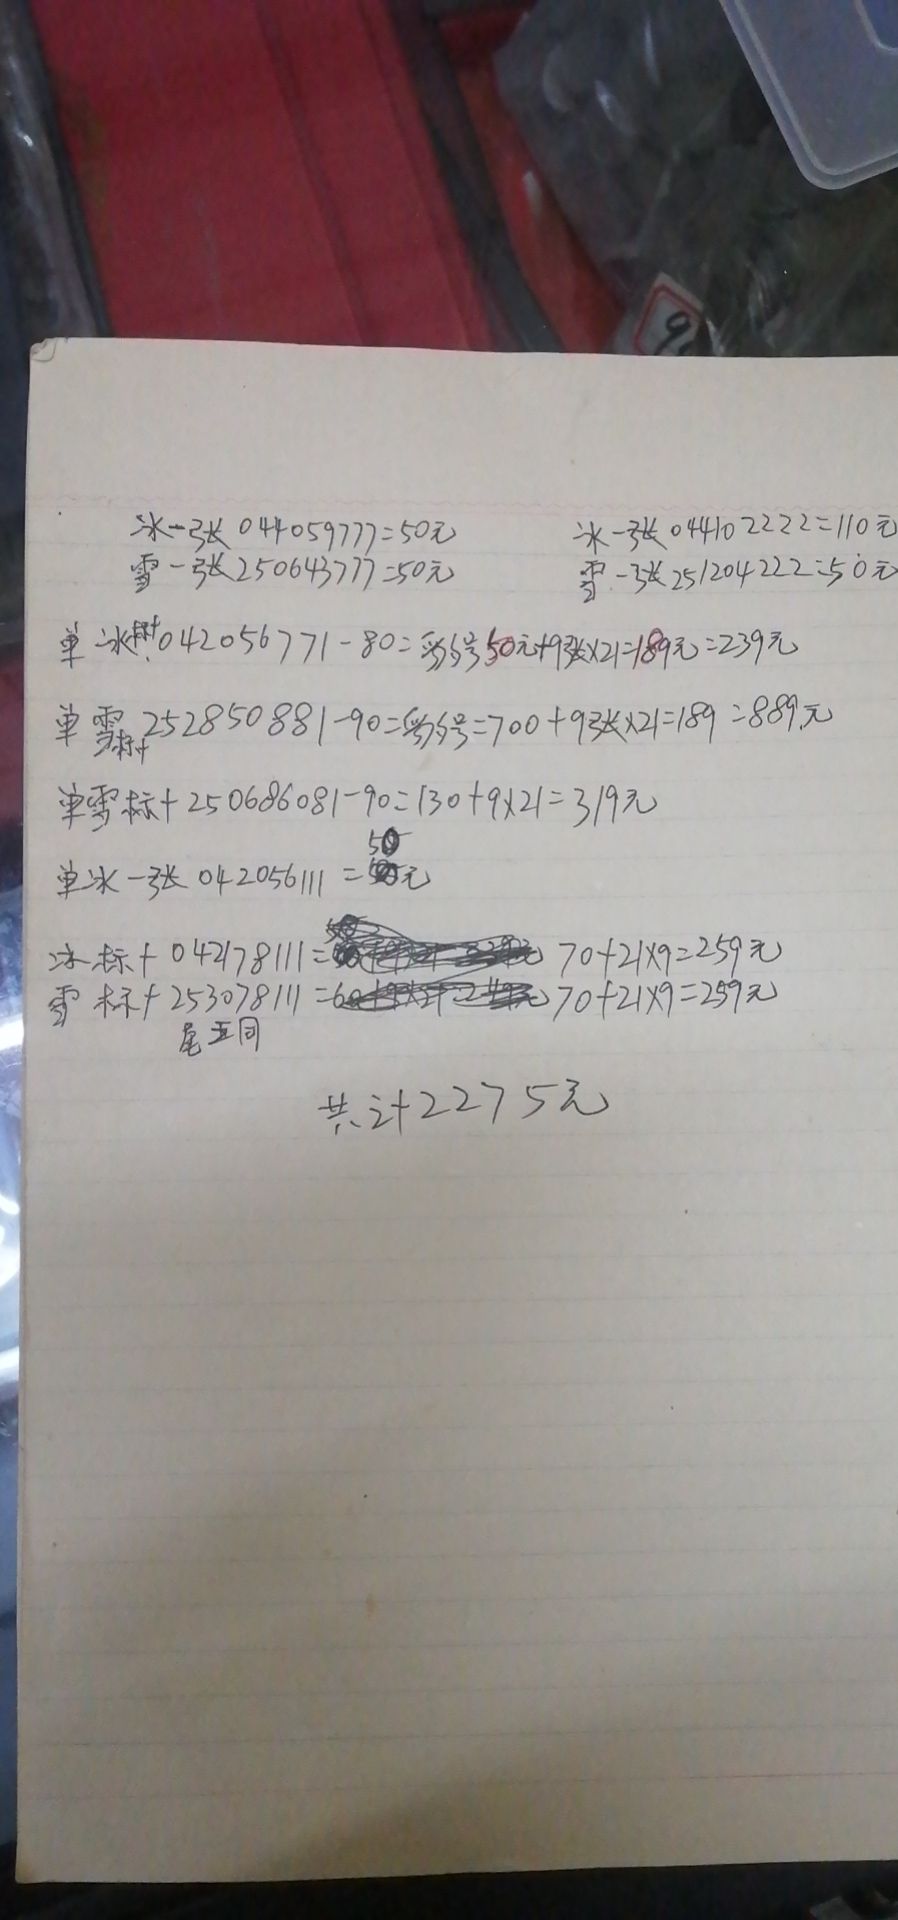 冰一张044059777=50元 冰一张044102222=110元
雪一张250643777=50元 雪一张251204222=50元
单冰标十042056771-80=豹子号50元+9张×21=189元=239元
单雪标十252850881-90=豹子号=700+9张×21=189=889元
单雪标十250686081-90=130+9×21=319元
50
单冰一张042056111=元
冰标十042178111= 70+21×9=259元
雪标十253078111= 70+21×9=259元
尾五同
共计2275元